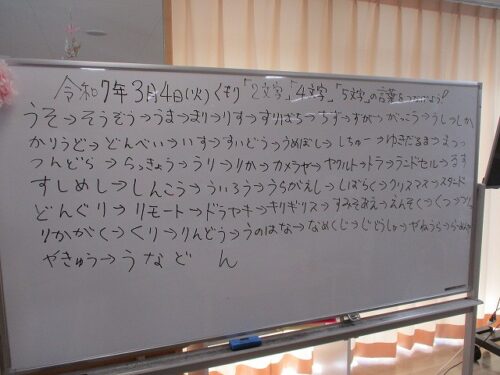 令和7年3月4日(火)くもり「2文字」「4文字」「5文字」の言葉をつなげよう!
うそ→そうぞう→うま→まり→りす→すりばち→ちず→すが→がっこう→うしつしか
かりうど→どんべい→いす→すいどう→うめぼし→しちゅー→ゆきだるま→まっつ
つんどら→らっきょう→うり→りか→カメラヤ→ヤクルト→トラ→ランドセル→るす
すしめし→しんこう→ういろう→うらがえし→しばらく→クリスマス→スタード
どんぐり→リモート→ドラヤキ→キリギリス→すみそあえ→えんそく→くつ→つり
りかがく→くり→りんどう→うのはな→なめくじ→じどうしゃ→やねうら→らーめん
やきゅう→うなどん